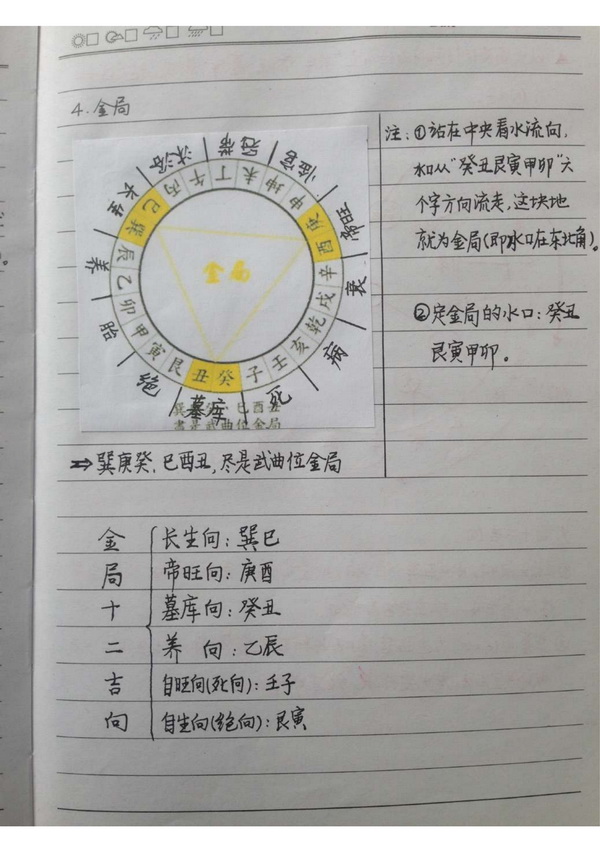 4.金局
注:①站在中央看水流向,
水口从“癸丑艮寅甲卯”六
个字方向流走,这块地
就为金局(即水口在东北角)。
②定金局的水口:癸丑
艮寅甲卯。
长生
沐浴
冠带
临官
帝旺
衰
病
死
墓库
绝
胎
养
巽巳丙午丁未坤申庚酉辛戌乾亥壬子癸丑艮寅甲卯乙辰
金局
巳酉丑
尽是武曲位金局
⇒巽庚癸、巳酉丑,尽是武曲位金局
金局十二吉向
长生向:巽巳
帝旺向:庚酉
墓库向:癸丑
养 向:乙辰
自旺向(死向):壬子
自生向(绝向):艮寅